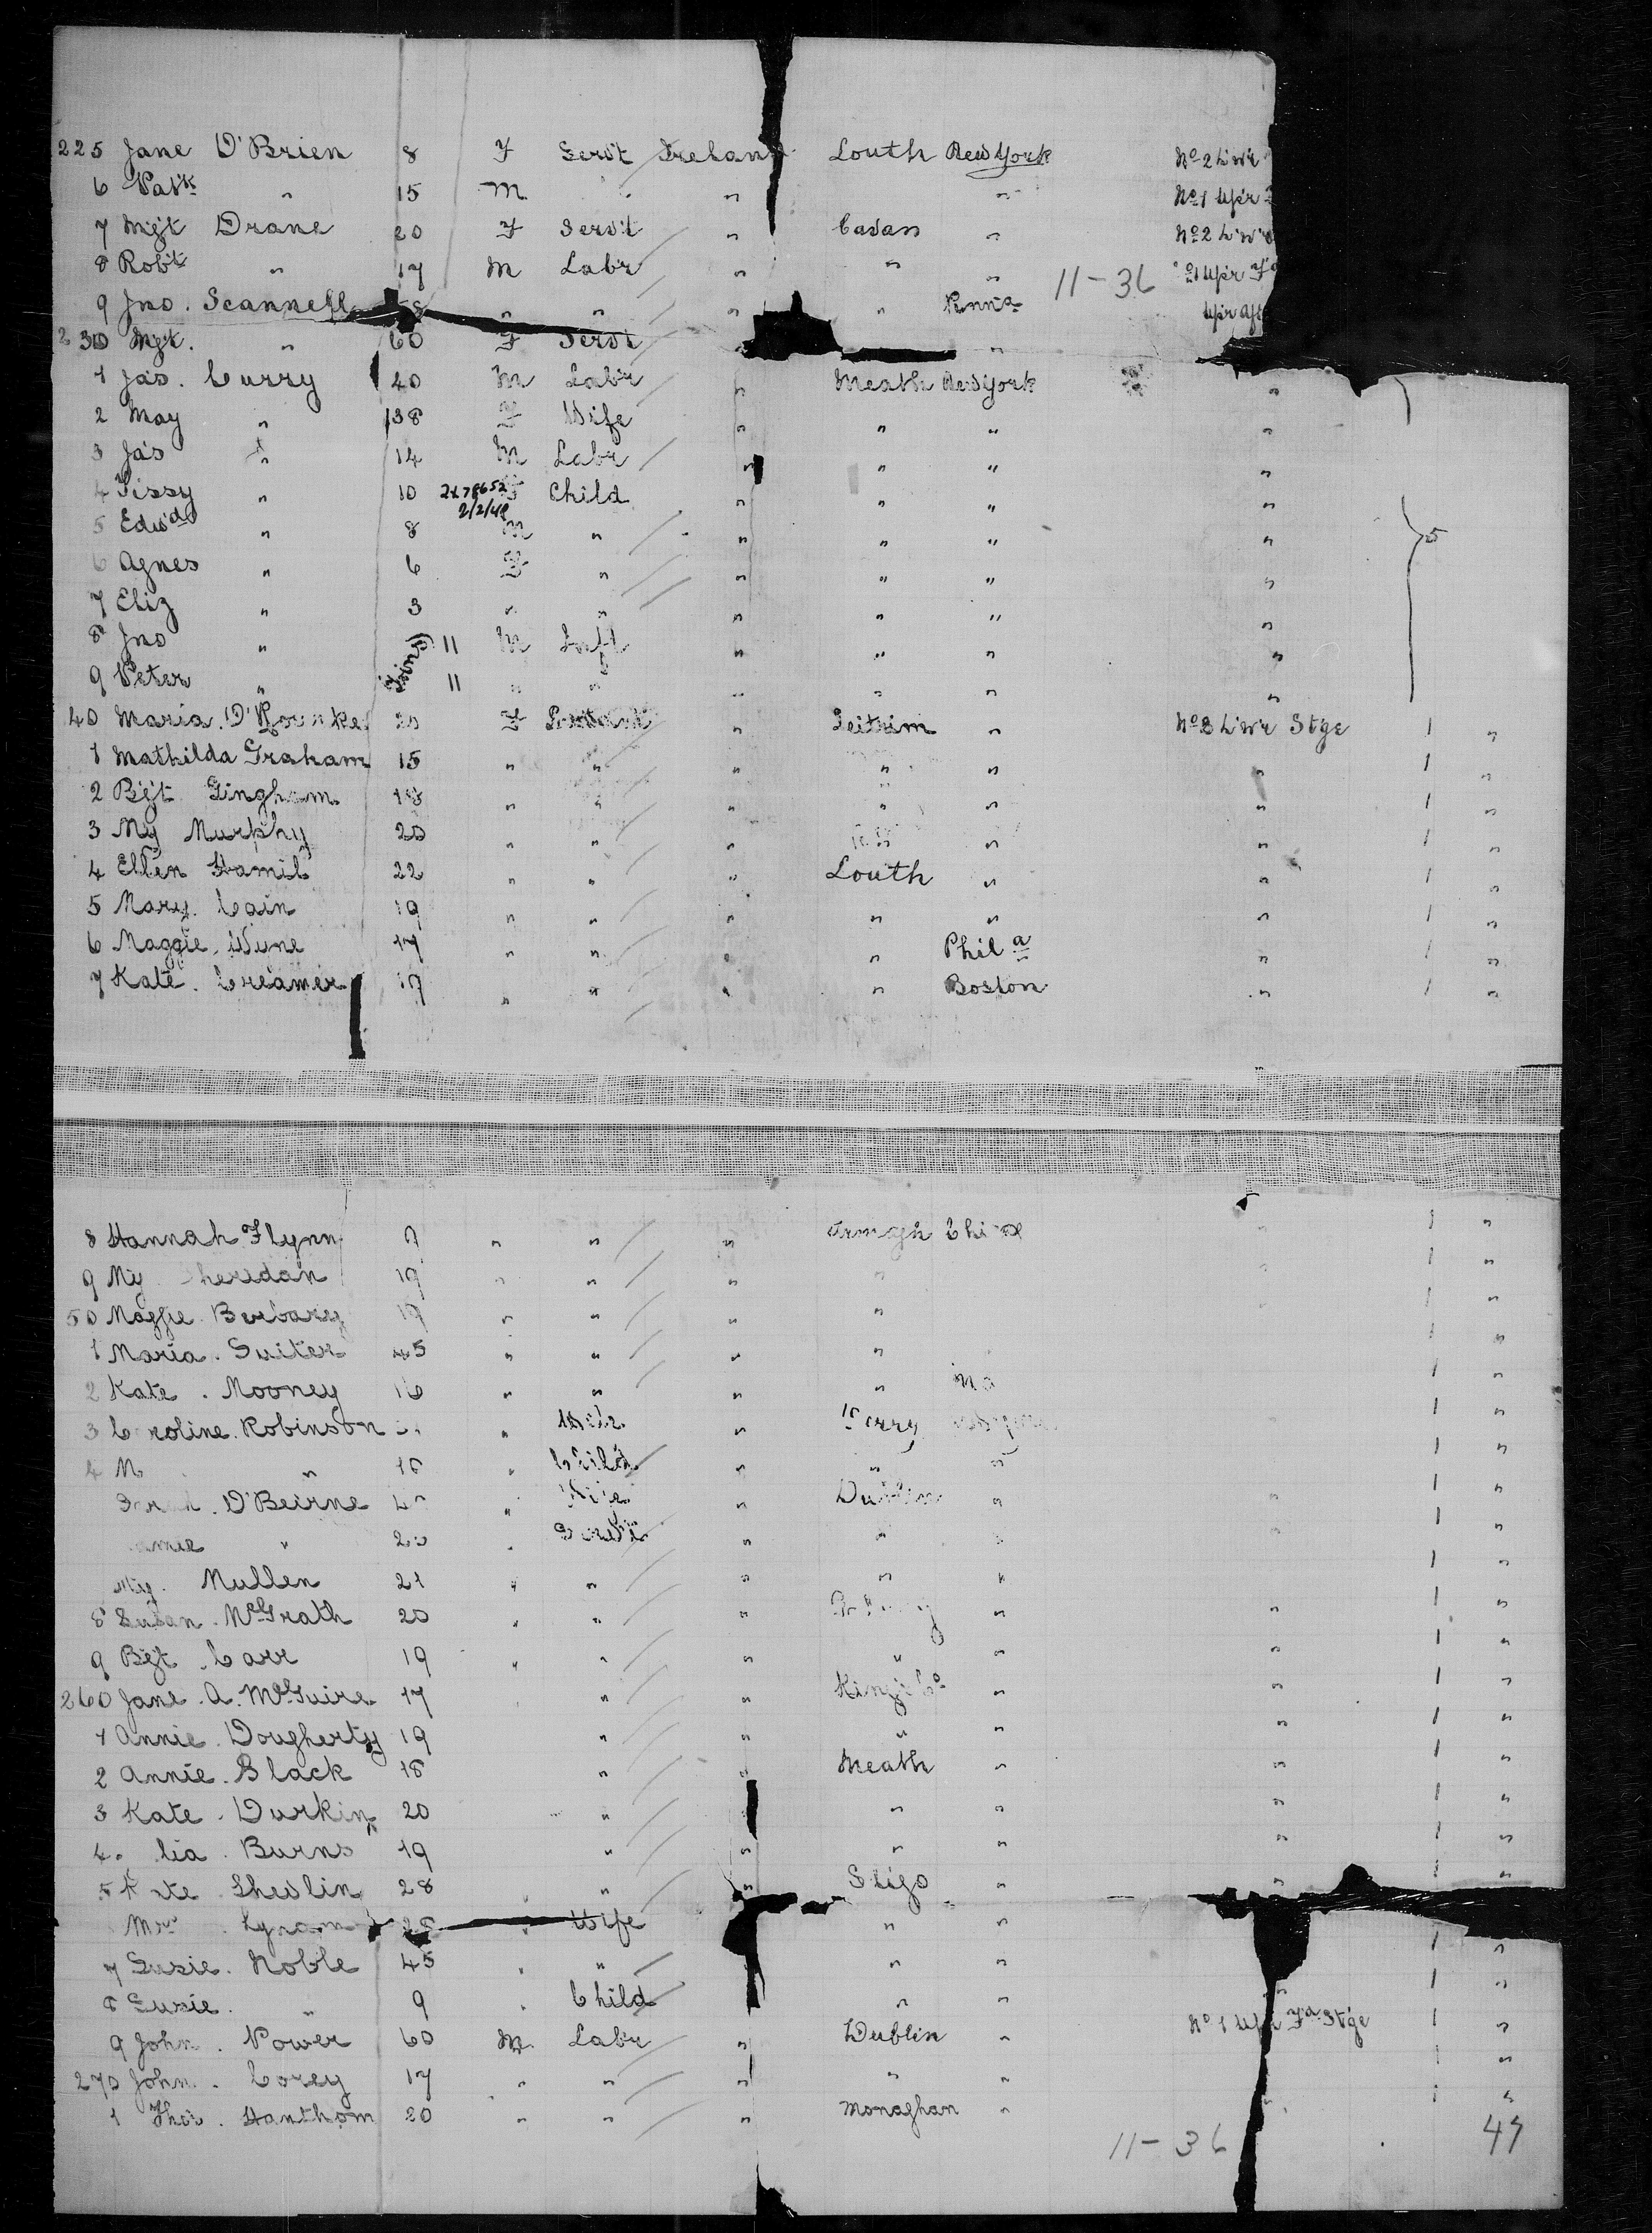 225 Jane O'Brien 8 F Serv't Ireland Louth New York No 2 Lw'r
6 Patk " 15 M " " " No 1 Up'r
7 Mgt Drane 20 F Serv't " Cavan " No 2 Lw'r
8 Robt " 17 M Lab'r " " " 11-36 o1 Up'r
9 Jno. Scannell 58 " " " " Penna Up'r Aft
230 Mgt. " 60 F Servt " "
1 Jas. Curry 40 M Lab'r " Meath New York "
2 May " 38 F Wife " " " "
3 Jas " 14 M Labr " " " "
4 Tissy " 10 2x78652 F Child " " " "
2/2/48
5 Edw'd " 8 M " " " " " 5
6 Agnes " 6 F " " " " "
7 Eliz " 3 " " " " " "
8 Jno " (Twins) 11 M Inft " " " "
9 Peter " 11 " " " " " "
40 Maria O'Rourke 20 F Servant " Leitrim " No 2 Lw'r Stge 1 "
1 Mathilda Graham 15 " " " " " " 1 "
2 Bgt Gingham 18 " " " " " " 1 "
3 My Murphy 20 " " " " " 1 "
4 Ellen Hamil 22 " " " Louth " " 1 "
5 Mary. Cain 19 " " " " " " 1 "
6 Maggie. Wune 17 " " " " Phila " 1 "
7 Kate. Creamer 19 " " " " Boston " 1 "
8 Hannah Flynn " " " Armagh 1 "
9 My heridan 19 " " " " 1 "
50 Maggie. Berbary 19 " " " " 1 "
1 Maria. Suiter 45 " " " " 1 "
2 Kate. Mooney 16 " " " " 1 "
3 C roline. Robinson " " 1 "
4 M " " Child " " " 1 "
O'Beirne " Wife " Dublin " " 1 "
" " Serv't " " " " 1 "
My. Mullen 21 " " " " " 1 "
8 Susan. McGrath 20 " " " " " 1 "
9 Bgt. Carr 19 " " " " " " 1 "
260 Jane. A. McGuire 17 " " King's Co " " 1 "
1 Annie. Dougherty 19 " " " " " 1 "
2 Annie. Black 18 " " Meath " " 1 "
3 Kate. Durkin 20 " " " " " 1 "
4 lia. Burns 19 " " " " " 1 "
5 K te. Shevlin 28 " " Sligo " " 1 "
Mrs. Lynam 28 " Wife " "
7 Susie. Noble 45 " " " " 1 "
8 Susie. " 9 " Child " " " 1 "
9 John. Power 60 M Lab'r " Dublin " No 1 Up'r Fd Stge 1 "
270 John. Corey 17 " " " " " 1 "
1 Thos. Hanthom 20 " " " Monaghan " " 1 "
11-36 47